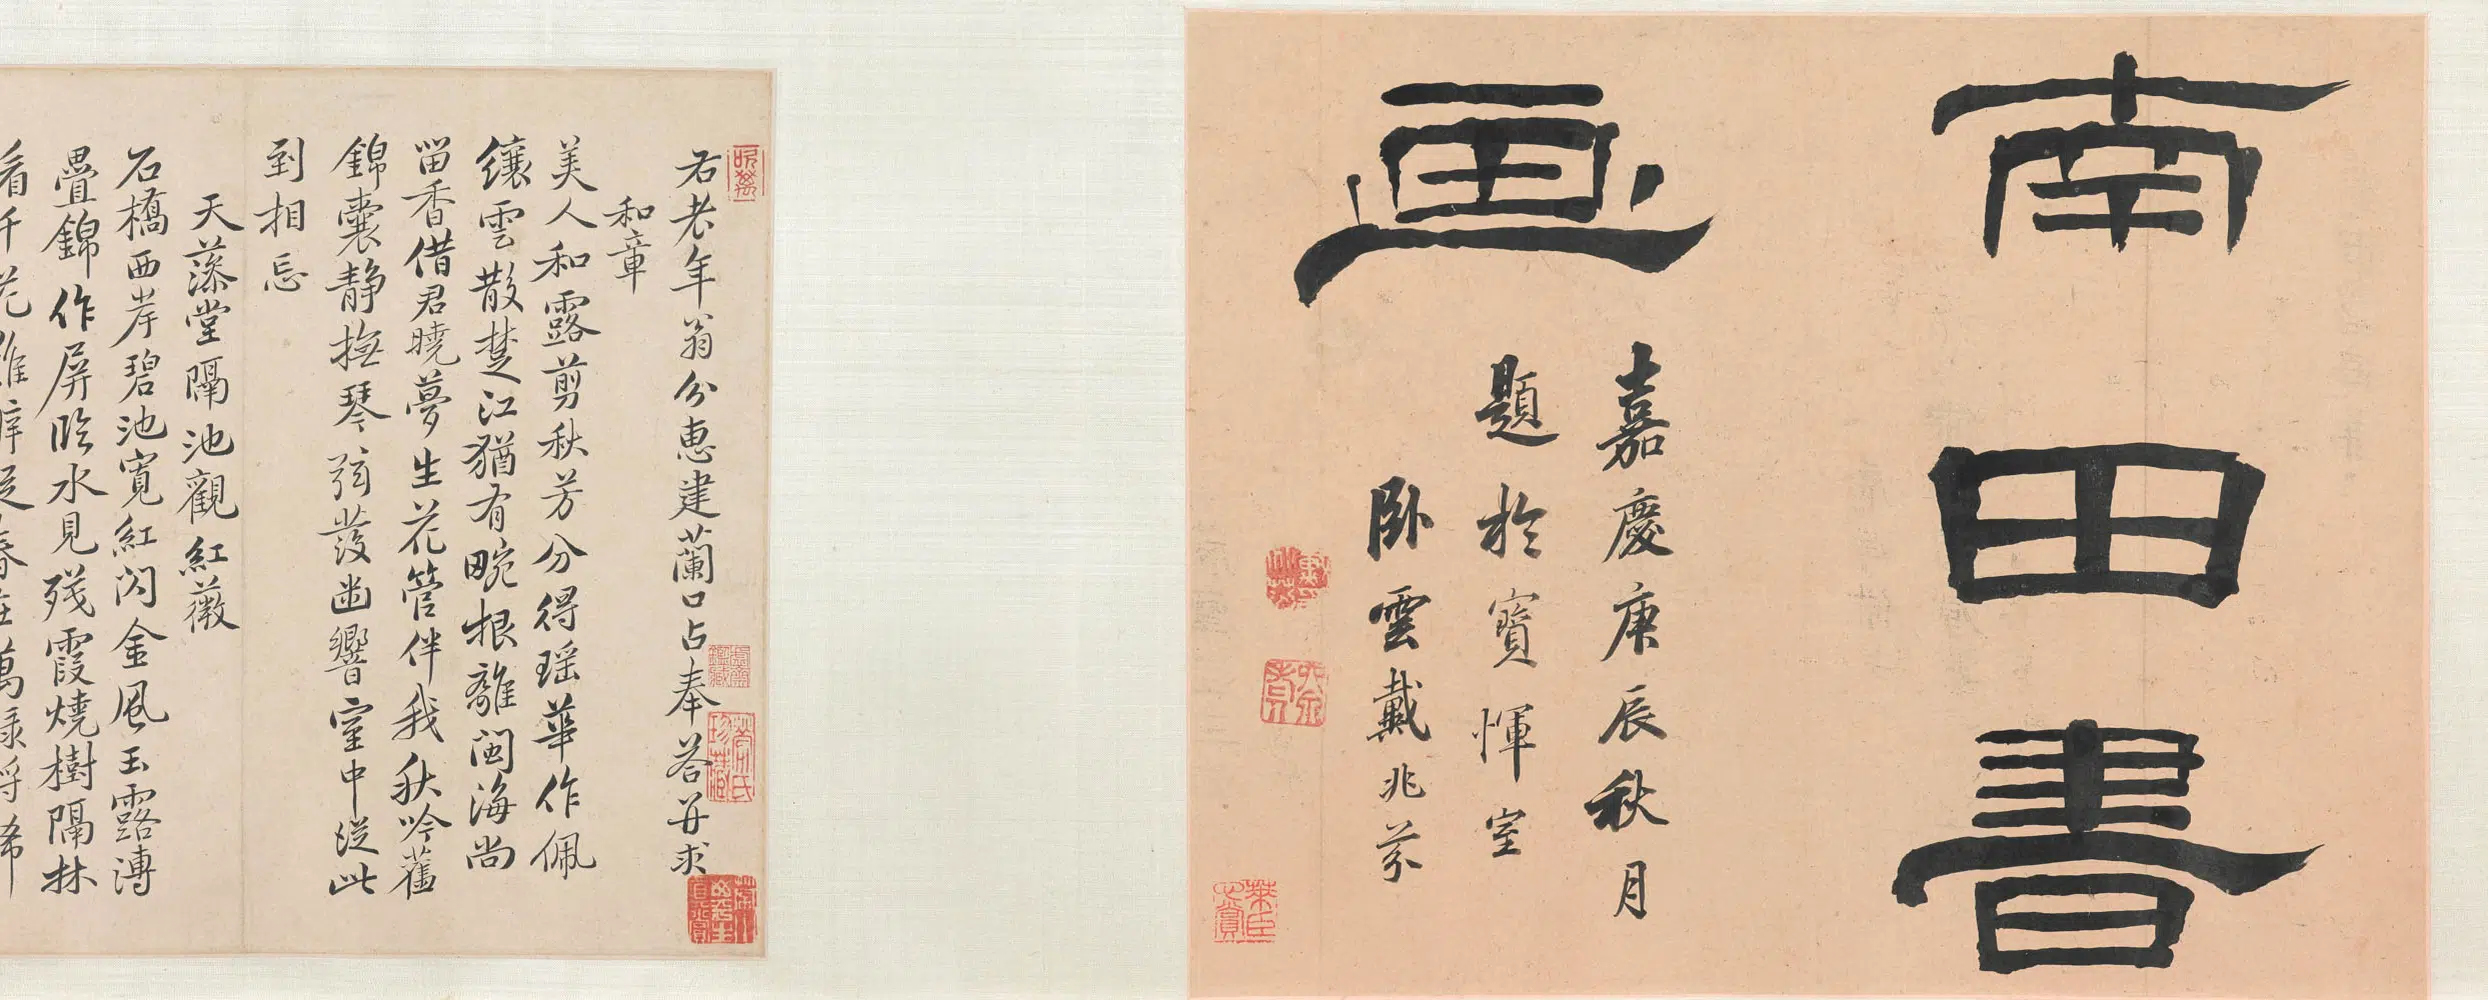 南田書
画
嘉慶庚辰秋月
題於寶惲室
卧雲戴兆芬
右老年翁分惠建蘭口占奉荅并求
和章
美人和露剪秋芳分得瑶華作佩
纕雲散楚江猶有畹根離閩海尚
留香借君曉夢生花管伴我秋吟舊
錦囊静撫琴弦發幽響室中從此
到相忘
天藻堂隔池觀紅薇
石橋西岸碧池寬紅閃金風玉露漙
疊錦作屏臨水見殘霞燒樹隔林
看千花